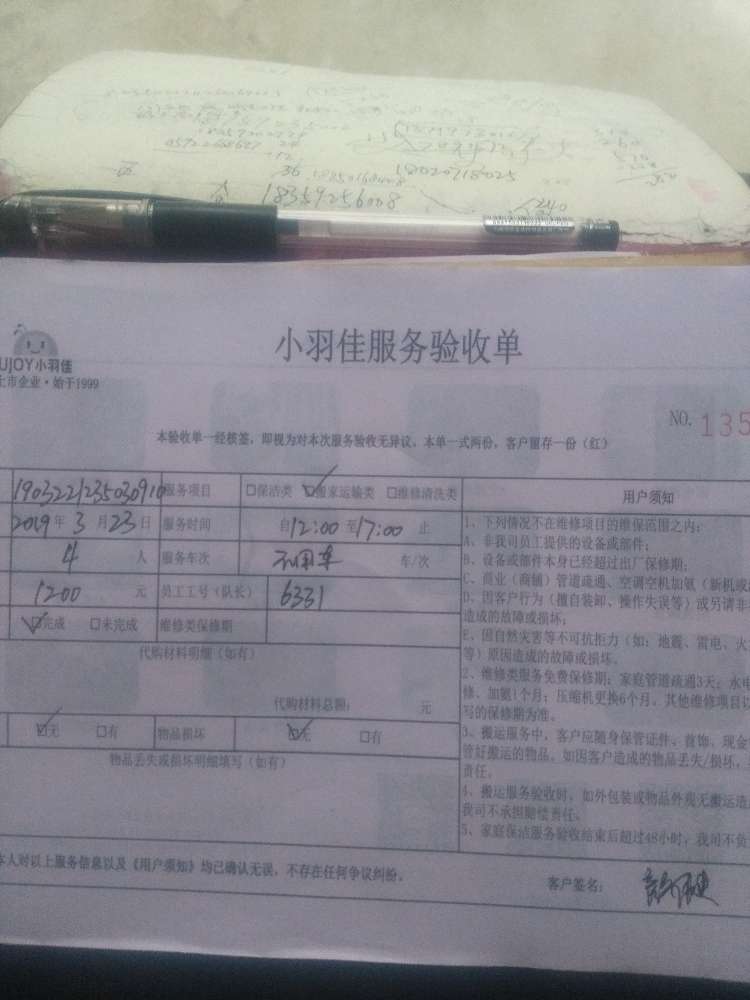 36
18020718025
18359256008
240
小羽佳服务验收单
UJOY小羽佳
上市企业·始于1999
NO. 135
本验收单一经核签，即视为对本次服务验收无异议。本单一式两份，客户留存一份（红）
190322123503091 服务项目 □保洁类 ☑搬家运输类 □维修清洗类 用户须知
2019年3月23日 服务时间 自12:00至17:00止
4人 服务车次 不用车 车/次
1200元 员工工号（队长） 6331
☑完成 □未完成 维修类保修期
代购材料明细（如有）
代购材料总额： 元
☑无 □有 物品损坏 ☑无 □有
物品丢失或损坏明细填写（如有）
1、下列情况不在维修项目的维保范围之内：
A、非我司员工提供的设备或部件；
B、设备或部件本身已经超过出厂保修期；
C、商业（商铺）管道疏通、空调空机加氨（新机或
D、因客户行为（擅自装卸、操作失误等）或另请非
造成的故障或损坏；
E、因自然灾害等不可抗拒力（如：地震、雷电、火
等）原因造成的故障或损坏。
2、维修类服务免费保修期：家庭管道疏通3天；水电
修、加氨1个月；压缩机更换6个月。其他维修项目以
写的保修期为准。
3、搬运服务中，客户应随身保管证件、首饰、现金
管好搬运的物品。如因客户造成的物品丢失/损坏，
责任。
4、搬运服务验收时，如外包装或物品外观无搬运造
我司不承担赔偿责任。
5、家庭保洁服务验收结束后超过48小时，我司不负
本人对以上服务信息以及《用户须知》均已确认无误，不存在任何争议纠纷。
客户签名：